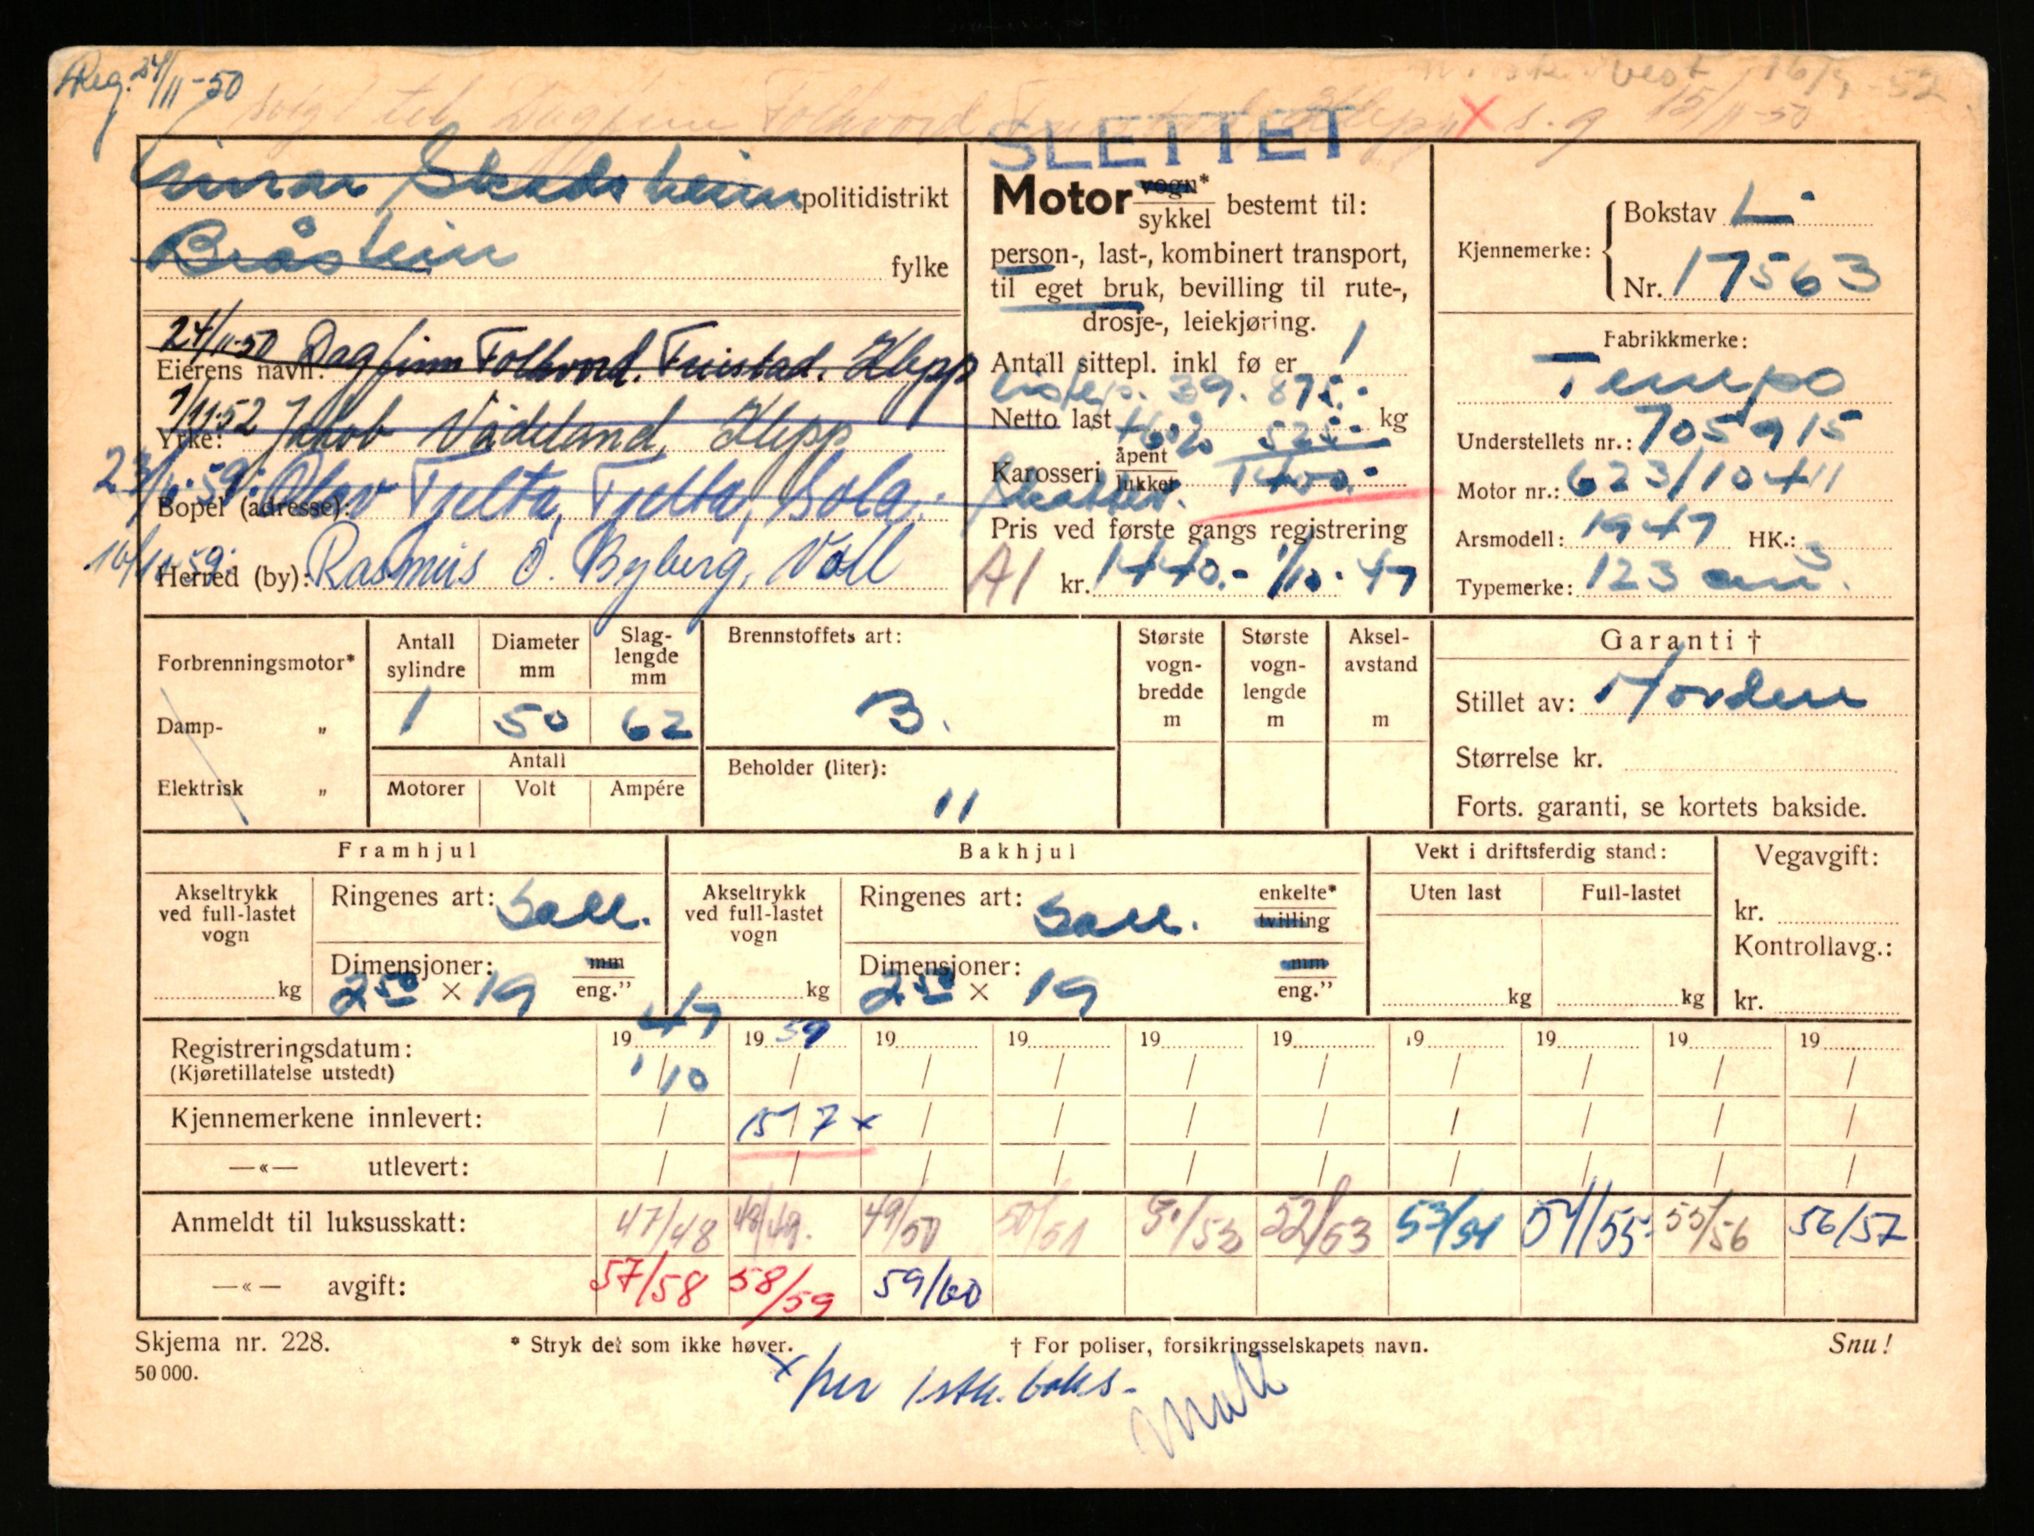 Reg. 24/11-50
solgt til Dagfinn Folkvord Friestad Klepp X s.g 15/11-50
vest 16/ -52
SLETTET
Einar Skadsheim politidistrikt
Bråstein fylke
24/11-50 Dagfinn Folkvord. Friestad. Klepp
Eierens navn:
1/11-52 Jakob Vådeland, Klepp
Yrke:
23/ -59. Olav Tjelta, Tjelta, Sola.
Bopel (adresse):
10/11-59. Rasmus O. Byberg, Voll
Herred (by):
Motor vogn*/sykkel bestemt til:
person-, last-, kombinert transport,
til eget bruk, bevilling til rute-,
drosje-, leiekjøring.
Antall sittepl. inkl fø er 1
39. 875.-
Netto last kg
16% 525.-
Karosseri åpent/lukket 1400.-
Skatt
Pris ved første gangs registrering
A1 kr. 1440.- 1/10.47
Kjennemerke:
Bokstav L
Nr. 17563
Fabrikkmerke:
Tempo
Understellets nr.: 705915
Motor nr.: 623/10411
Arsmodell: 1947 HK.: 3
Typemerke: 123 cm³.
Forbrenningsmotor*
Damp- „
Elektrisk „
Antall sylindre
1
Diameter mm
50
Slaglengde mm
62
Antall
Motorer Volt Ampére
Brennstoffets art:
B.
Beholder (liter):
11
Største vognbredde m
Største vognlengde m
Akselavstand m
Garanti †
Stillet av: Norden
Størrelse kr.
Forts. garanti, se kortets bakside.
Framhjul
Akseltrykk ved full-lastet vogn
kg
Ringenes art: Ball.
Dimensjoner: mm
2.50 × 19 eng.”
Bakhjul
Akseltrykk ved full-lastet vogn
kg
Ringenes art: Ball. enkelte*/tvilling
Dimensjoner: mm
2.50 × 19 eng.”
Vekt i driftsferdig stand:
Uten last Full-lastet
kg kg
Vegavgift:
kr.
Kontrollavg.:
kr.
Registreringsdatum: 1947 1959 19 19 19 19 19 19 19 19
(Kjøretillatelse utstedt) 1/10 / / / / / / / / /
Kjennemerkene innlevert: / 15/7 x / / / / / / / /
—«— utlevert: / / / / / / / / / /
Anmeldt til luksusskatt: 47/48 48/49. 49/50 50/51 51/52 52/53 53/54 54/55 55/56 56/57
—«— avgift: 57/58 58/59 59/60
Skjema nr. 228. * Stryk det som ikke høver. † For poliser, forsikringsselskapets navn. Snu!
50 000.
x her 1 stk.